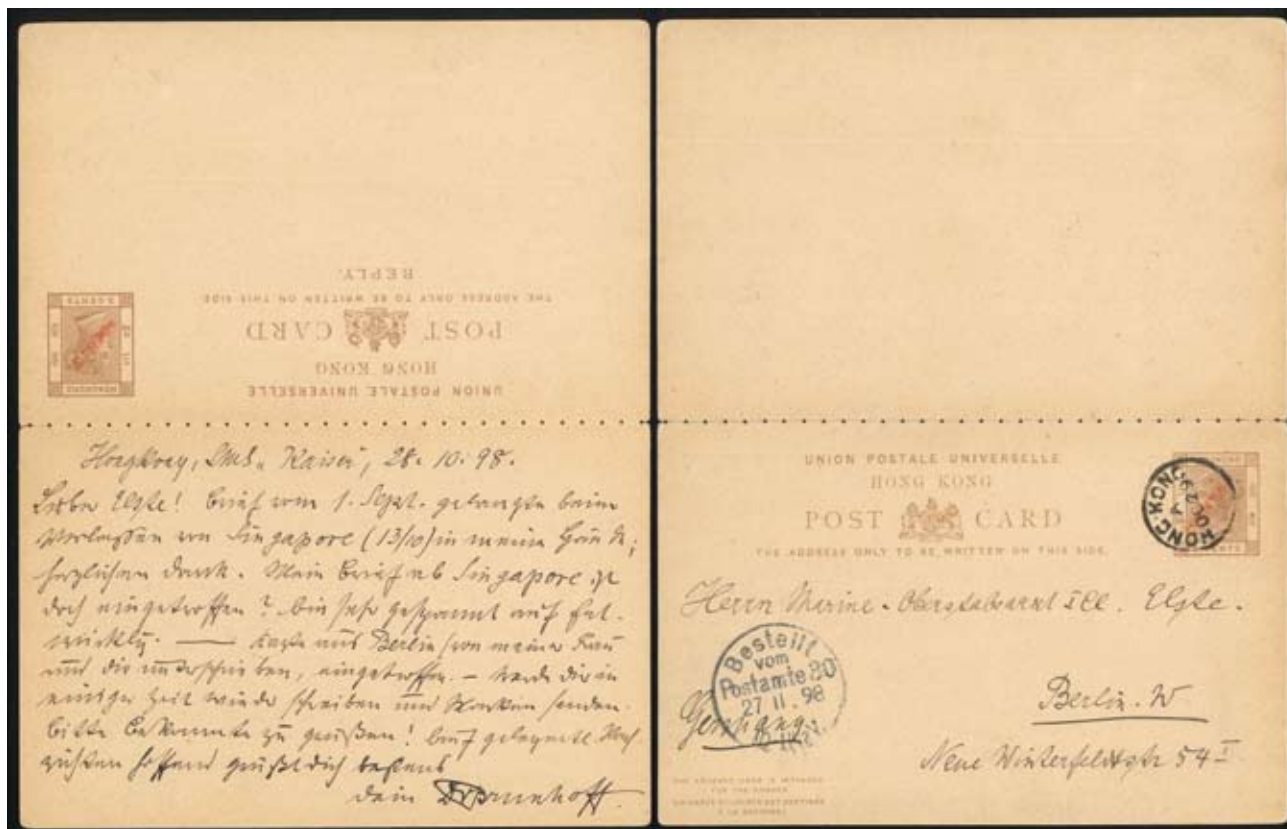 REPLY.
THE ADDRESS ONLY TO BE WRITTEN ON THIS SIDE
POST CARD
HONG KONG
UNION POSTALE UNIVERSELLE
HONG KONG
Hongkong, SMS. "Kaiser", 28. 10. 98.
Lieber Elste! Brief vom 1. Sept. gelangte beim
Verlassen von Singapore (13/10) in meine Hände;
herzlichen Dank. Mein Brief ab Singapore ist
doch eingetroffen? Bin sehr gespannt auf Ent-
wicklg. — Karte aus Berlin, von meiner Frau
und dir unterschrieben, eingetroffen. – Werde dir in
einiger Zeit wieder schreiben und Marken senden.
Bitte Bekannte zu grüßen! Auf gelegentl. Nach
richten hoffend grüßt dich bestens
dein
UNION POSTALE UNIVERSELLE
HONG KONG
POST CARD
THE ADDRESS ONLY TO BE WRITTEN ON THIS SIDE.
HONG-KONG
Herrn Marine-Oberstabsarzt I Cl. Elste.
Bestellt
vom
Postamte 30
27 11. 98
Germany.
Berlin. W
Neue Winterfeldtstr 54 I